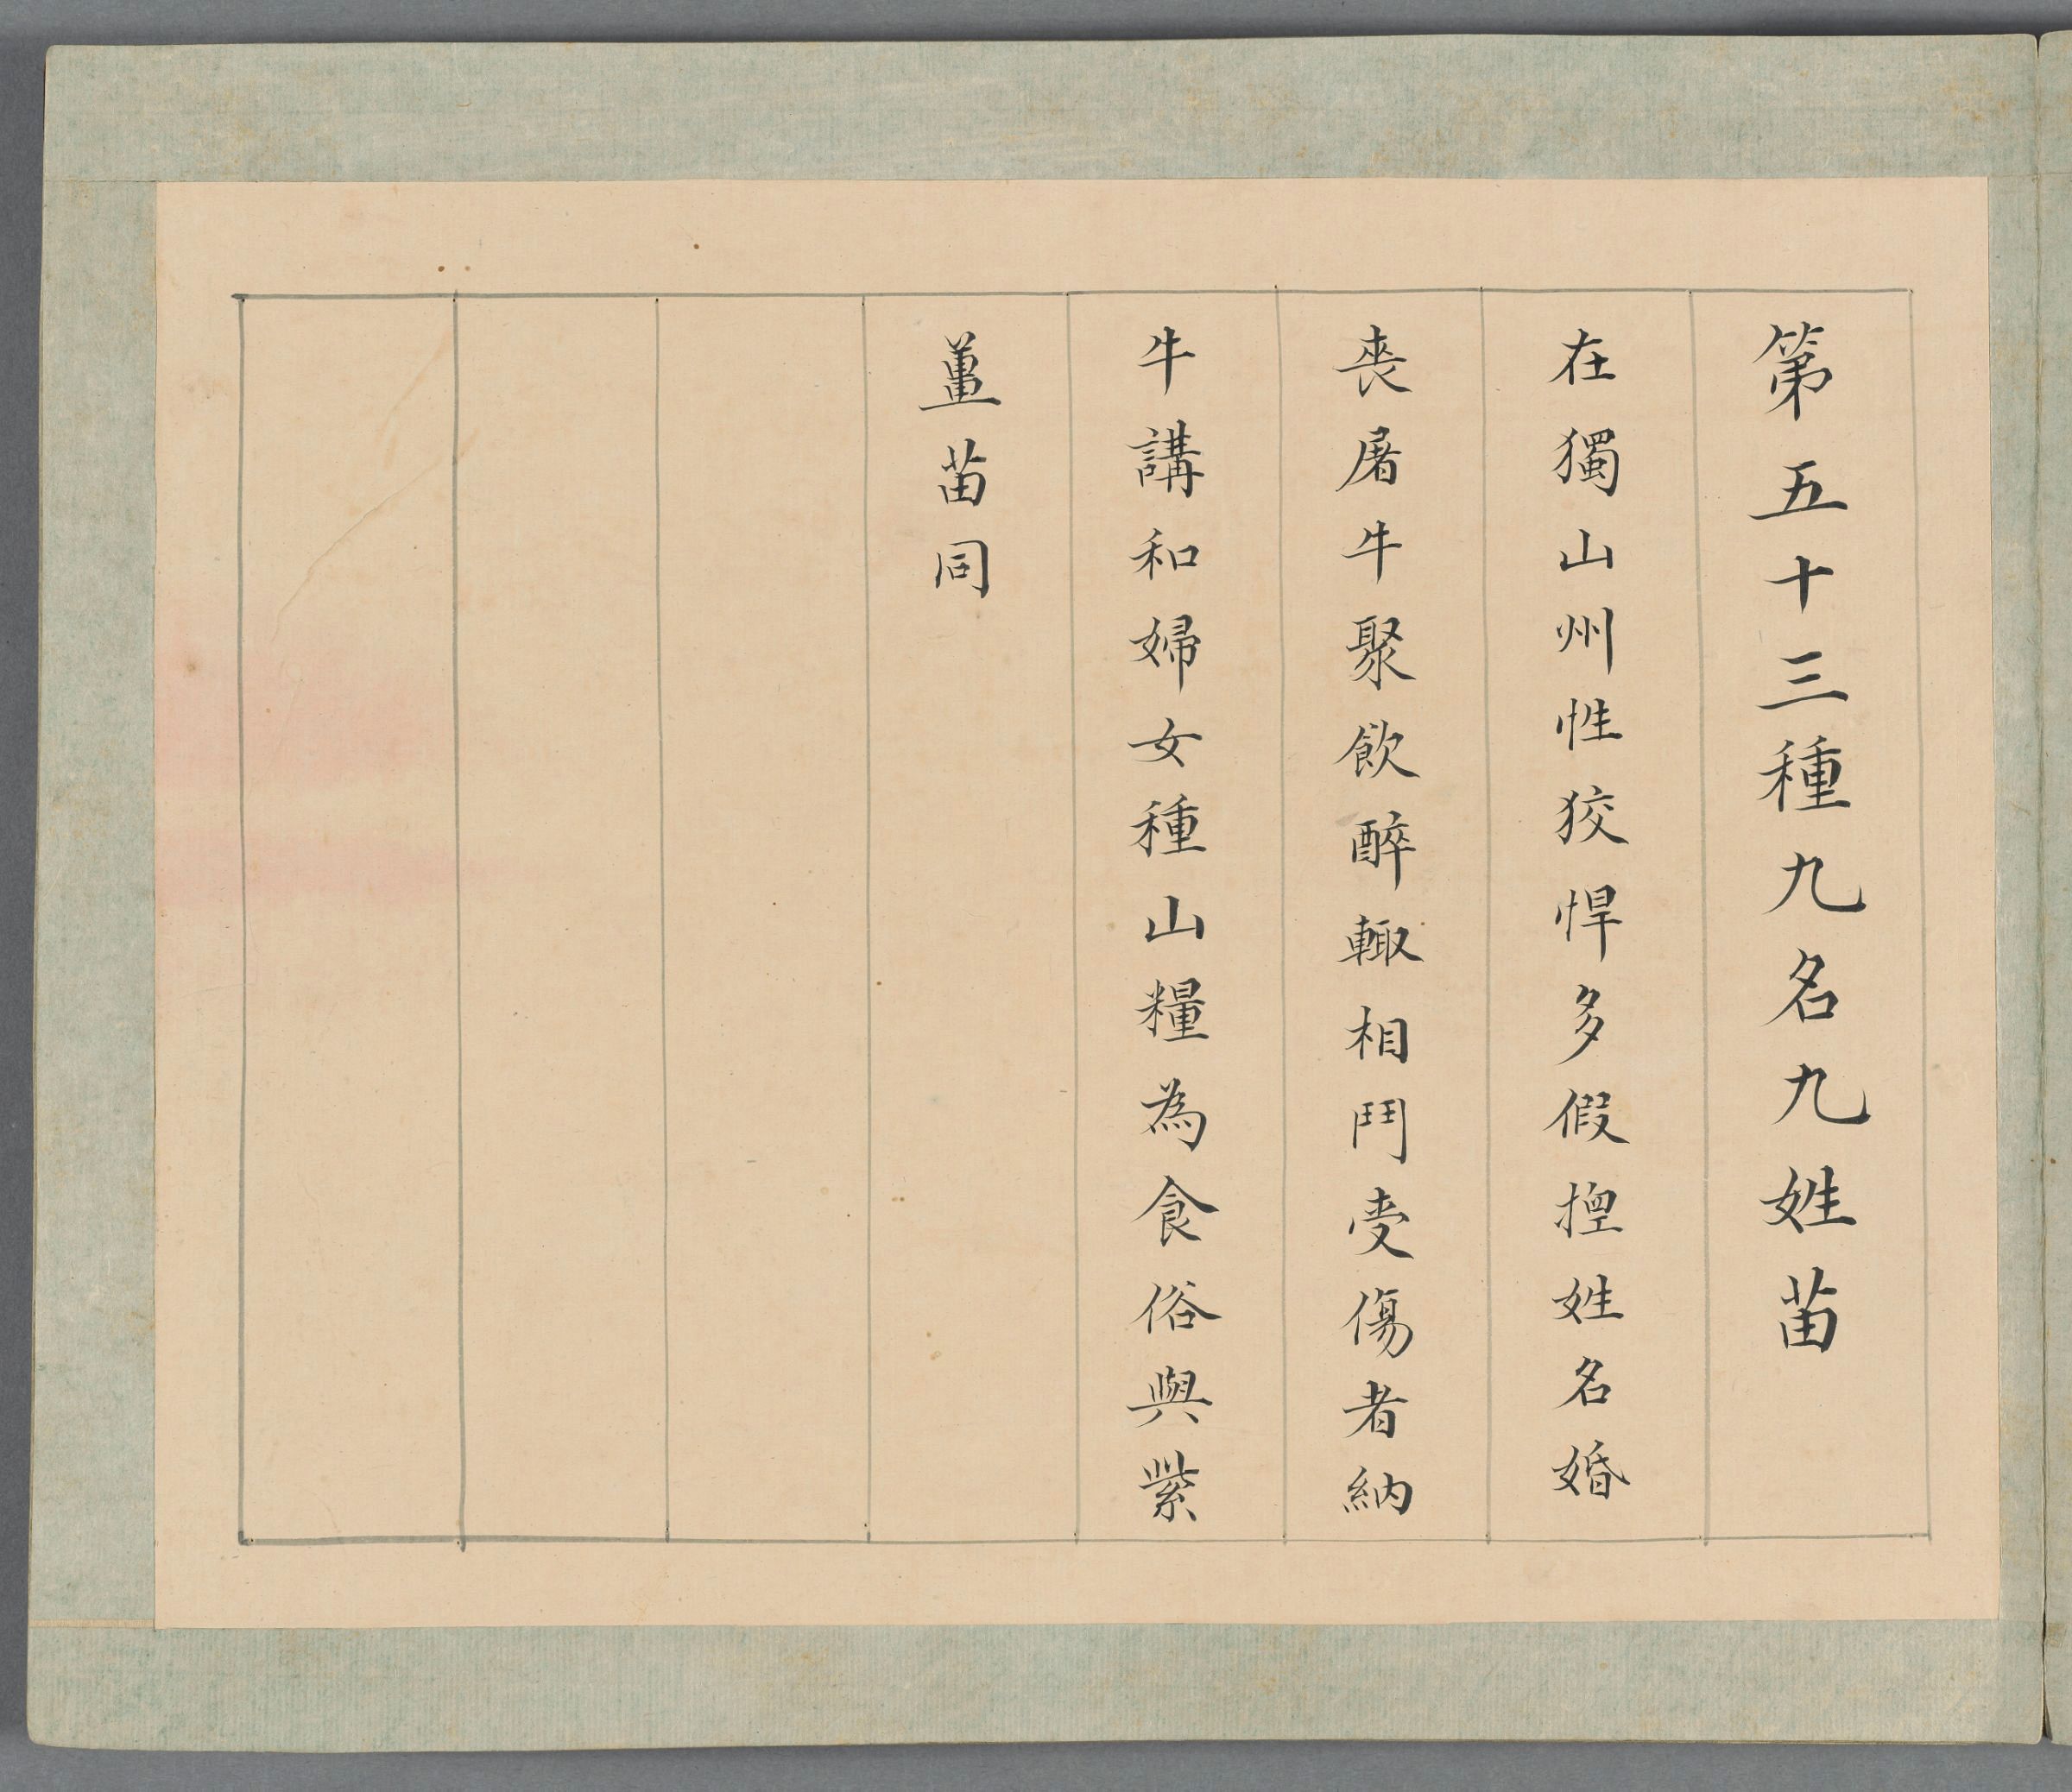 第五十三種九名九姓苗
在獨山州性狡悍多假捏姓名婚
喪屠牛聚飲醉輙相鬥受傷者納
牛講和婦女種山糧為食俗與紫
薑苗同